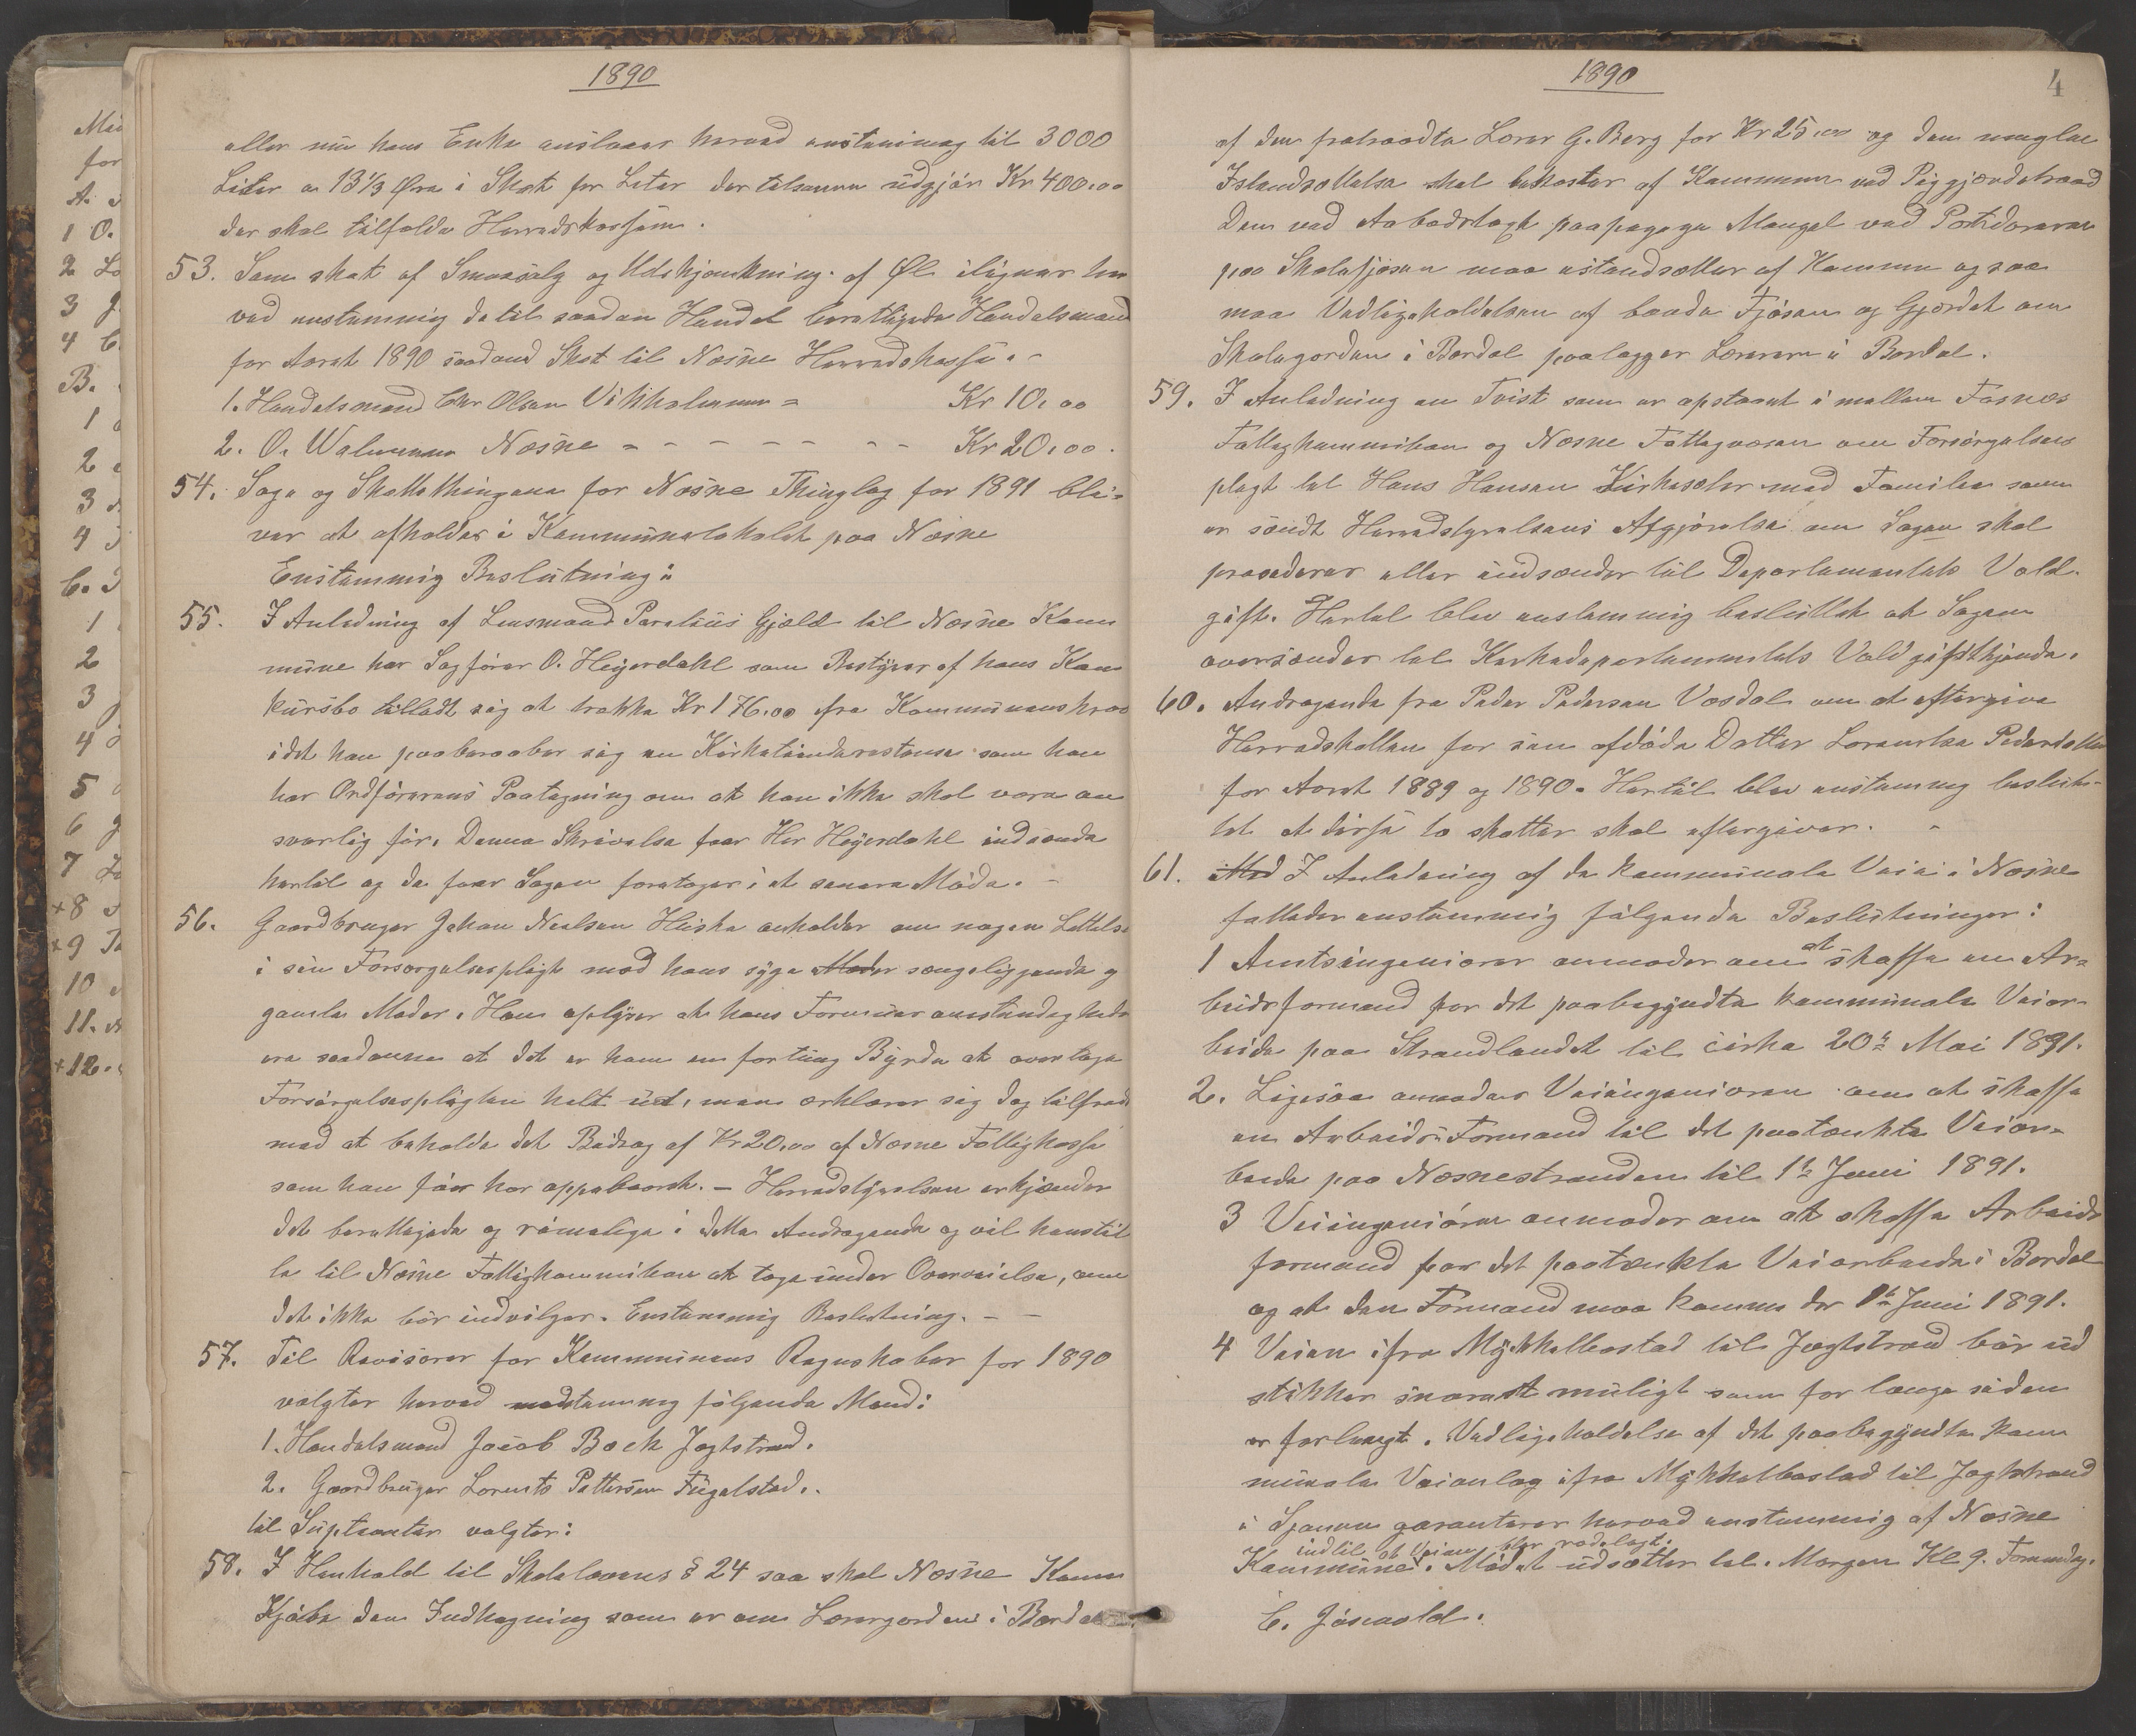 1890
eller nu hans Enke anslaaes herved enstemmig til 3000
Liter a 13 1/3 Øre i Skat per Liter der tilsammen udgjör Kr 400.00
der skal tilfalde Herredskassen.
53. Som skat af Smaasalg og Udskjænkning af Øl ilignes her
ved enstemmig de til saadan Handel berettigede Handelsmænd
for Aaret 1890 saadand Skat til Nesne Herredskasse. -
1. Handelsmand Chr Olsen Vikholmen = Kr 10.00
2. O. Walnum Nesne - - - - - - - Kr 20.00.
54. Sage og Skattethingene for Nesne Thinglag for 1891 bli-
ver at afholdes i Kommunelokalet paa Nesne
Enstemmig Beslutning:
55. I Anledning af Lensmand Parelius Gjæld til Nesne Kom
mune har Sagförer O. Heyerdahl som Bestyrer af hans Kon
kursbo tilladt sig at trække Kr 176.00 fra Kommunens krav
idet han paaberaaber sig en Kirketienderestanse som han
har Ordförerens Paategning om at han ikke skal være an
svarlig för. Denne Skrivelse faar Her Heyerdahl indsende
hertil og da faar Sagen foretages i et senere Möde. -
56. Gaardbruger Johan Nealsen Huske anholder om nogen Lettelse
i sin Forsørgelsespligt med hans syge Moder sengeliggende og
gamle Moder. Han oplyser at hans Formuesomstendigheder
ere saadanne at det er ham en for tung Byrde at overtage
Forsörgelsespligten helt ud, men erklærer sig dog tilfreds
med at beholde det Bidrag af Kr 20.00 af Nesne Fattigkasse
som han för har oppebaaret. - Herredstyrelsen erkjender
det berettigede og rimelige i dette Andragende og vil henstil
le til Nesne Fattigkommision at tage under Overveielse, om
det ikke bör indvilges. Enstemmig Beslutning. - -
57. Til Revisorer for Kommunens Regnskaber for 1890
vælgtes herved enstemmig fölgende Mænd:
1. Handelsmand Jacob Bech Jegtstrand.
2. Gaardbruger Lorents Pettersen Fugelstad.
til Supleanter valgtes:
58. I Henhold til Skolelovens § 24 saa skal Nesne Komm
Kjöbe den Indhegning som er om Lærergorden i Bardal
1890
4
af den fratraadte Lærer G. Berg for Kr 25.00 og den mangle
Istandsættelse skal bekostes af Kommunen ved Piggjerdetraad
Den ved Aabodstagt paapegede Mangel ved Portdörerne
paa Skolefjösen maa istandsættes af Kommunen og saa
maa Vedligeholdelsen af baade Fjösen og Gjerdet om
Skolegorden i Bardal paalægges Læreren i Bardal.
59. I Anledning en Tvist som er opstaaet i mellem Fosnes
Fattigkommision og Nesne Fattigvæsen om Forsörgelses
plegt til Hans Hansen Kirkesoler med Familie som
er sendt Herredstyrelsens Afgjörelse om Sagen skal
procederes eller indsendes til Departementets Vold
gift. Hertil blev enstemmig besluttet at Sagen
oversendes til Kirkedepartementets Voldgiftskjende.
60. Andragende fra Peder Pedersen Vesdal om at eftergive
Herredskatten for sin afdöde Datter Lorentse Pedersdatter
for Aaret 1889 og 1890. Hertil blev enstemmig beslut-
tet at disse to skatter skal eftergives. -
61. Med I Anledning af de kommunale Veie i Nesne
fattedes enstemmig fölgende Beslutninger:
1 Amtsingeniören anmodes om at skaffe en Ar-
beidsformand for det paabegyndte kommunale Veiar-
beide paa Strandlandet til cirka 20de Mai 1891.
2. Ligesaa anmodes Veiingeniören om at skaffe
en Arbeids Formand til det paatænkte Veiar-
beide paa Nesnestranden til 1te Juni 1891.
3 Veiingeniören anmodes om at skaffe Arbeids
formand for det paatænkte Veiarbeide i Bardal
og at den Formand maa komme der 1te Juni 1891.
4 Veien ifra Mykkelbostad til Jegtstrand bör ud
stikkes snarest muligt som for længe siden
er forlangt. Vedligeholdelse af det paabegyndte kom
munale Veianlæg ifra Mykkelbostad til Jegtstrand
i Sjonen garanteres herved enstemmig af Nesne
indtil at Veien blir rodelagt.
Kommune. Mödet udsættes til Morgen Kl 9. Formidag.
C. Jösevold.